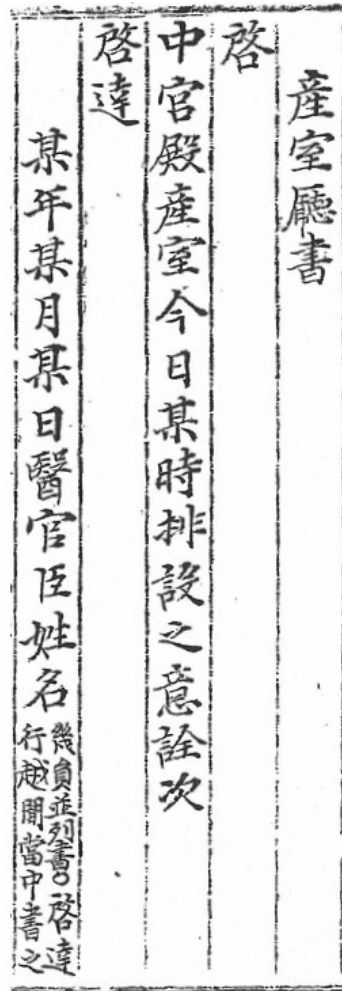 產室廳書
啓
中宮殿產室今日某時排設之意詮次
啓達
某年某月某日醫官臣姓名幾員並列書○啓達
行越間當中書之